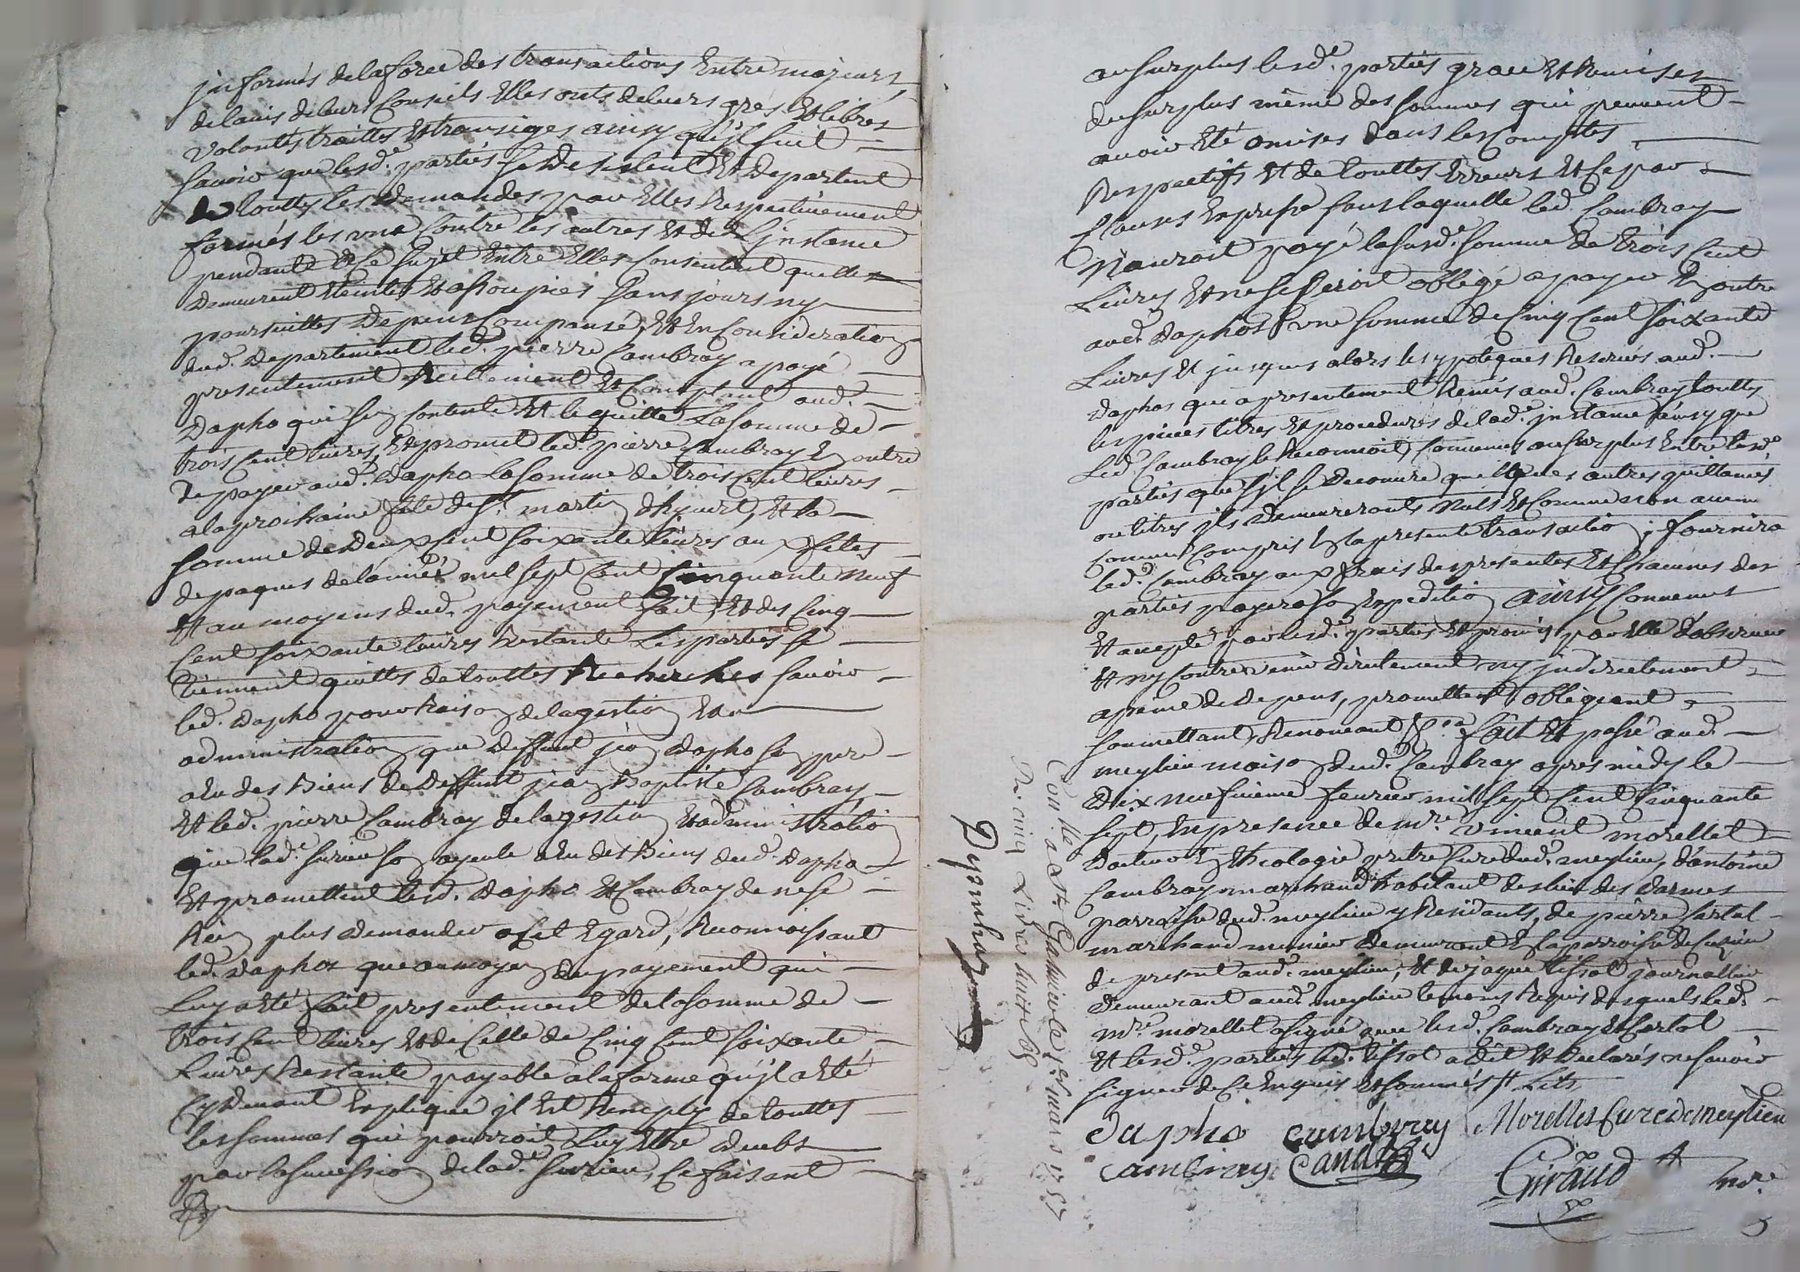 informés delaforce des transactions Entre majeurs
delavis deleurs Conseils Elles onts deleurs grés Et libres
volontés traittés Et transiges ainsy qu'jl suit
savoir que lesd. parties se Desistent Et Departent
De touttes les Demandes par Elles Respectivement
formés les une Contre les autres Et de L'jnstance
pendante a Ce sujet Entre Elles Consentent quelles
Demeurent Eteintes Et assoupies sans jours ny
poursuittes Depens Compensé, Et En Consideration
dud. Departement led. pierre Cambray a payé
presentement Reellement Et Comptant aud.
Dapho qui s'en Contente Et le quitte La somme de
trois Cent livres, Et promet led. pierre Cambray En outre
De payer aud. Dapho La somme de trois Cent livres
ala prochaine fête de St. martin d'hyvert, Et la
somme de Deux Cent soixante livres aux fêtes
de paques de l'année mil sept Cent Cinquante neuf
Et au moyens dud. payement fait Et des Cinq
Cent soixante livres Restante Les parties se
tiennent quittes de touttes Recherches savoir
led. Dapho pour Raison de la gestion Et
administration que Deffunt jean Dapho son pere
a Eu des Biens de Deffunt jean Baptiste Cambray
Et led. pierre Cambray de la gestion Et administration
que lad. surieu son ayeule a Eu des Biens dud. Dapho
Et promettent lesd. Dapho Et Cambray de ne se
Rien plus Demander a Cet Egard, Reconnoissant
led. Dapho que au moyen du payement qui
Luy a Eté fait presentement De la somme de
trois Cent livres Et de Celle de Cinq Cent soixante
Livres Restante payable a la forme qu'jl a Eté
Cy Devant Expliqué jl Est Remply de touttes
les sommes qui pourroit Luy Etre Deubs
par la succession de lad. surieu, Ce faisant
au surplus lesd. parties grace Et Remises
du surplus même des sommes qui peuvent
avoir Eté omises dans les Comptes
Respectifs Et de touttes Erreurs Et Ce par
Clauses Expresse sans laquelle led. Cambray
N'auroit payé la susd. somme de trois Cent
Livres Et ne se seroit obligé a payer En outre
aud. Daphos une somme de Cinq Cent soixante
Livres Et jusques alors les ypoteques Reservés aud.
Daphos qui a presentement Remis aud. Cambray touttes
les pieces titres Et procedures de lad. jnstance ainsy que
led. Cambray le Reconnoit, Convenu au surplus Entre lesd.
parties que s'jl se Decouvre quelques autres quittances
ou titres jls Demeureronts Nuls Et Comme non avenu
Comme Compris En la presente transaction, fournira
led. Cambray aux frais des presentes Et Chacunes des
parties payera son Expedition, ainsy Convenus
Et accepté par lesd. parties Et promis par Elle d'observer
Et ny Contrevenir Directement ny jndirectement
a peine de Depens, promettant obligeant
soumettant, Renonceant &ca. fait Et passé aud.
meylieu maison dud. Cambray apres midy le
Dix neufvieme fevrier mil sept Cent Cinquante
sept, En presence de mre. vincent morellet
Docteur En theologie pretre Curé dud. meylieu, d'antoine
Cambray marchand habitant
parroisse dud. meylieu y Residants, de pierre Cartal
marchand meunier Demeurant En la parroisse de
de present aud. meylieu, Et de jaque tissot journallier
Demeurant aud. meylieu temoins Requis desquels led.
mre. morellet a signé avec lesd. Cambray Et Cartal
Et lesd. parties led. tissot a Dit Et Declarés ne savoir
signer de Ce Enquis Et sommés
Dapho Cambray Morellet Curé de Meylieu
Cambray Giraud nore.
Con.lle a St. Galmier le 1er mars 1757